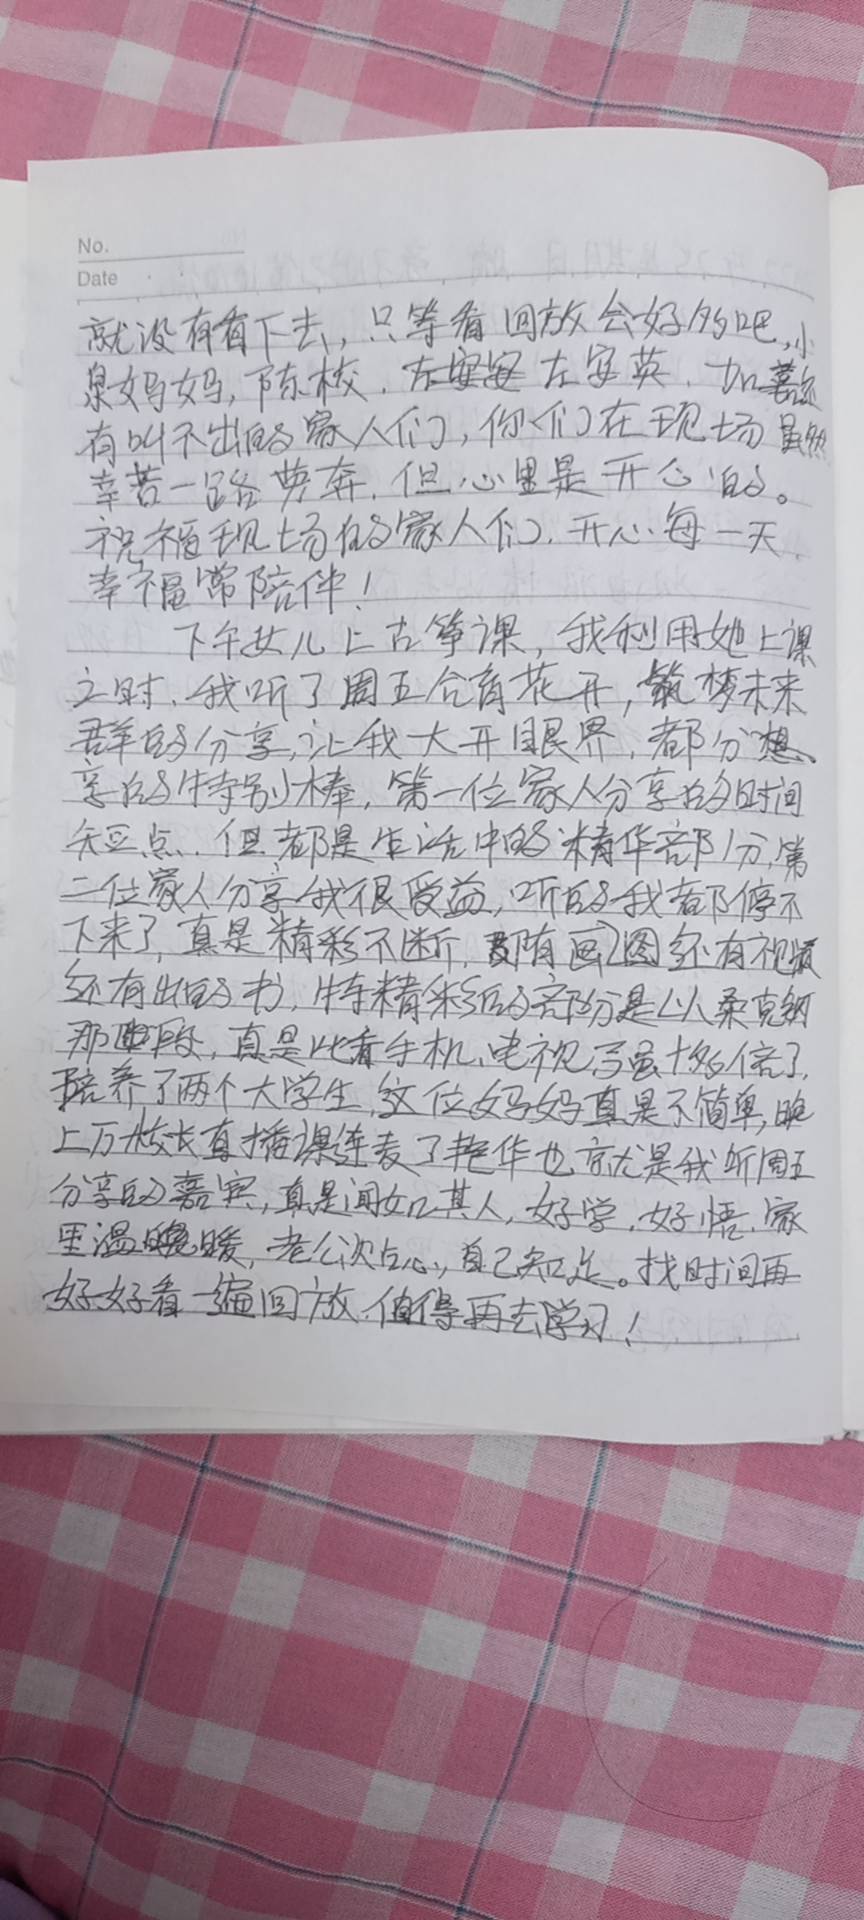 No.
Date
就没有看下去，只等看回放会好的吧，小
泉妈妈，陈校，左安英，如薏还
有叫不出的家人们，你们在现场虽然
辛苦一路劳奔，但心里是开心的。
祝福现场的家人们，开心每一天，
幸福常陪伴！
下午女儿上古筝课，我利用她上课
之时，我听了周五合育花开，筑梦未来
群的分享，让我大开眼界，都分
享的特别棒，第一位家人分享的时间
短点，但都是生活中的精华部分，第
二位家人分享我很受益，听的我都停不
下来了，真是精彩不断，都有画图还有视频
还有出的书，特精彩的部分是以桑克纳
那段，真是比看手机、电视了虽十多倍了，
培养了两个大学生，这位妈妈真是不简单，晚
上万校长直播课连麦了艳华也就是我听周五
分享的嘉宾，真是闻如其人，好学，好悟，家
里温暖，老公次点心，自己知足。找时间再
好好看一遍回放，值得再去学习！